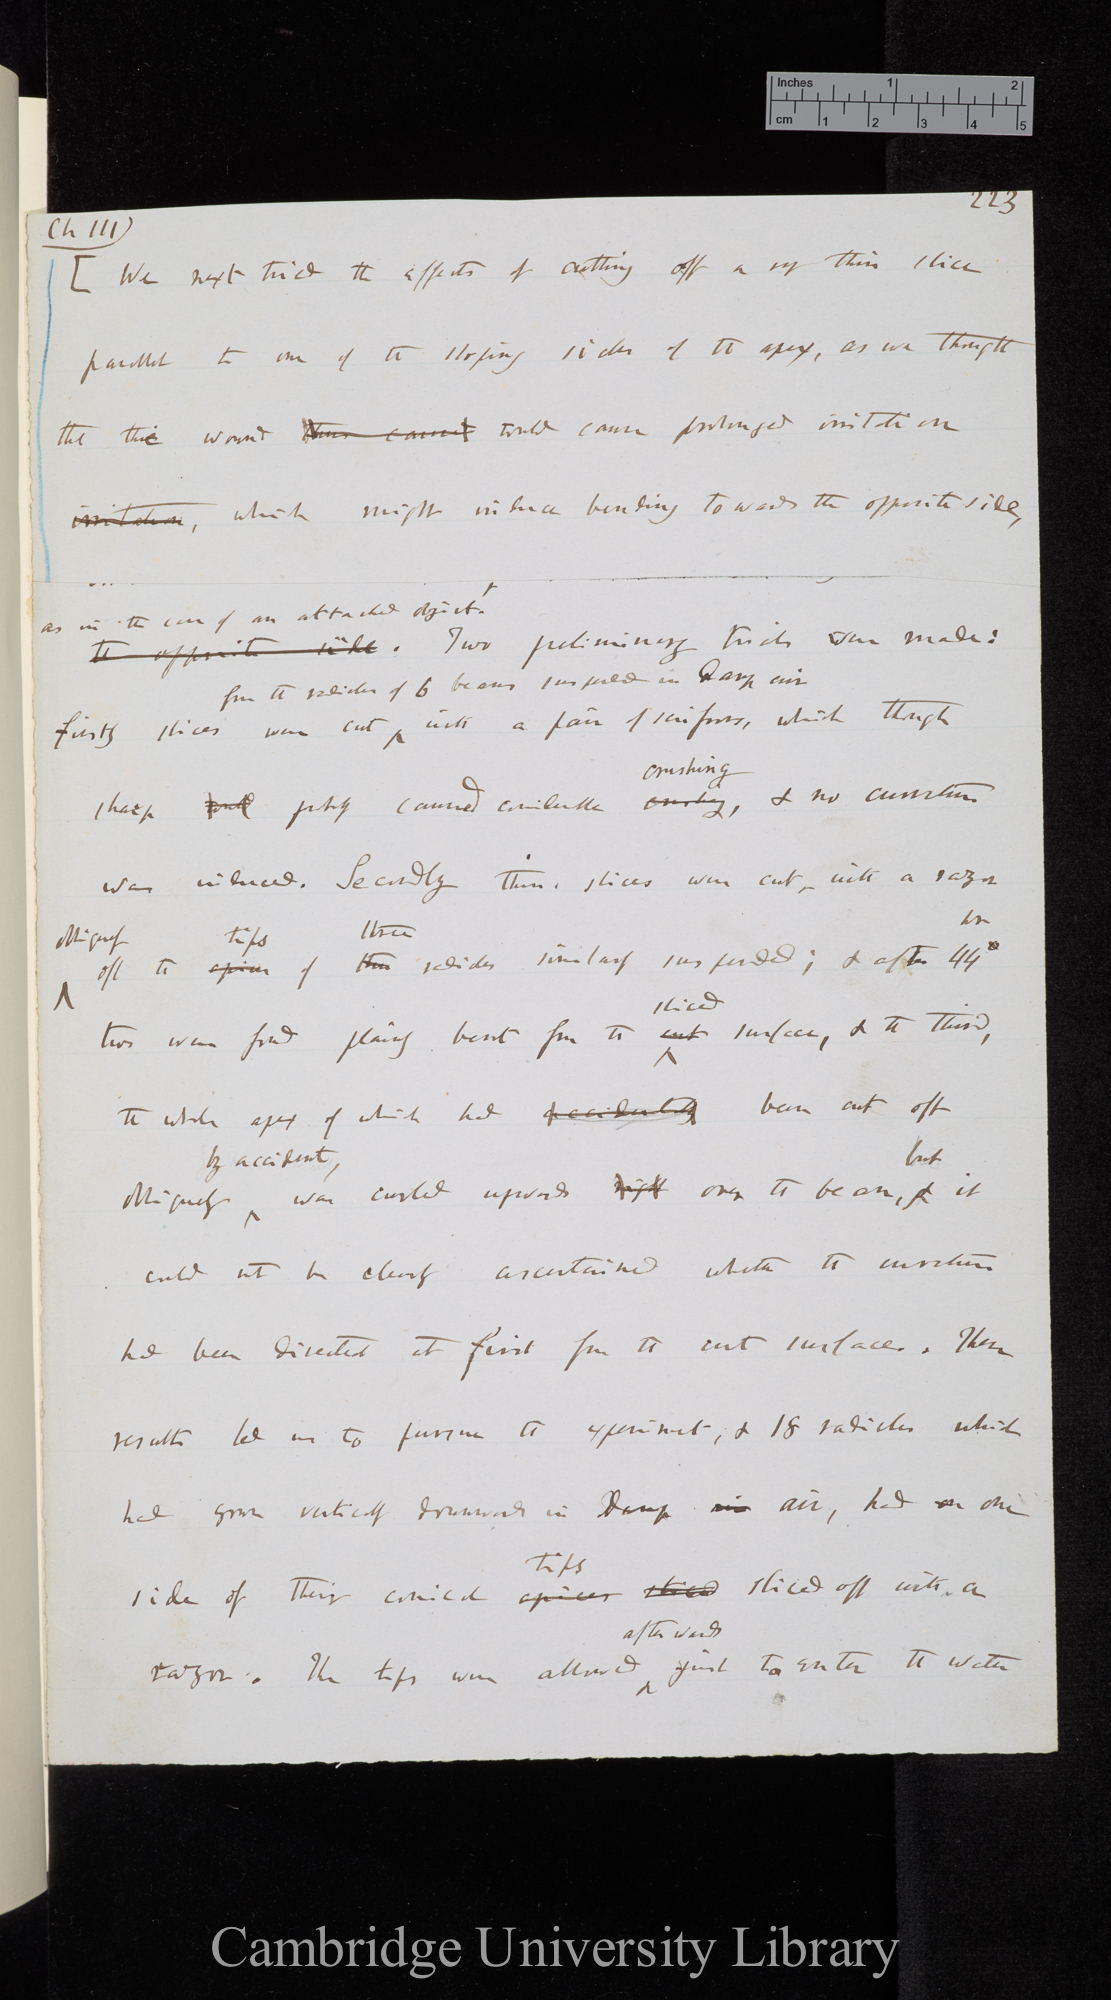 Inches 1 2
cm 1 2 3 4 5
223
Ch III)
[ We next tried the effects of cutting off a very thin slice
parallel to one of the sloping sides of the apex, as we thought
that the wound thus caused would cause prolonged irritation
irritation, which might induce bending towards the opposite side,
as in the case of an attached object.
the opposite side. Two preliminary trials were made:
from the radicles of 6 beans suspended in damp air
firstly slices were cut with a pair of scissors, which though
crushing
sharp probably caused considerable crushing, & no curvature
was induced. Secondly thin slices were cut, with a razor
obliquely tips three hr
off the apices of three radicles similarly suspended; & after 44
sliced
two were found plainly bent from the cut surface, & the third,
the whole apex of which had accidentally been cut off
by accident, but
obliquely was curled upwards right over the bean, & it
could not be clearly ascertained whether the curvature
had been directed at first from the cut surface. These
results led us to pursue the experiment, & 18 radicles which
had grown vertically downwards in damp air, had on one
tips
side of their conical apices sliced sliced off with a
afterwards
razor. The tips were allowed just to enter the water
Cambridge University Library